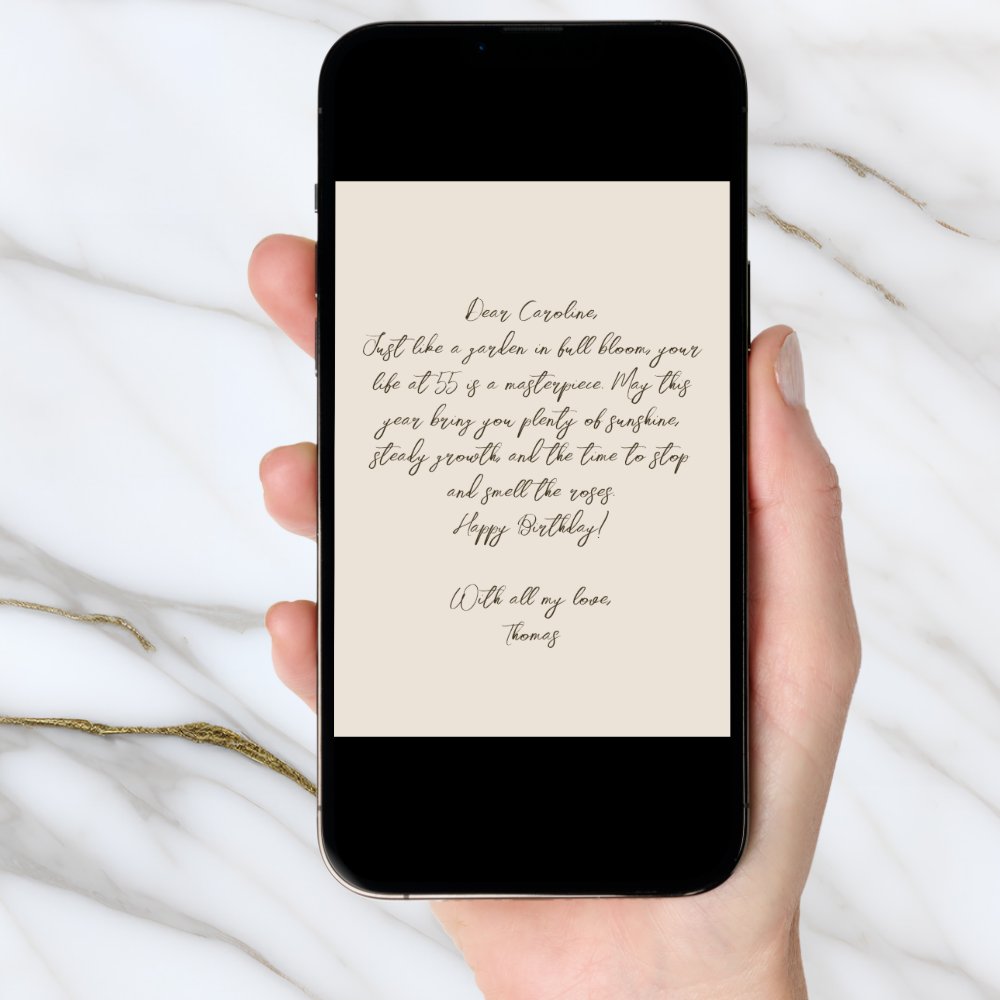 Dear Caroline,
Just like a garden in full bloom, your
life at 55 is a masterpiece. May this
year bring you plenty of sunshine,
steady growth, and the time to stop
and smell the roses.
Happy Birthday!
With all my love,
Thomas